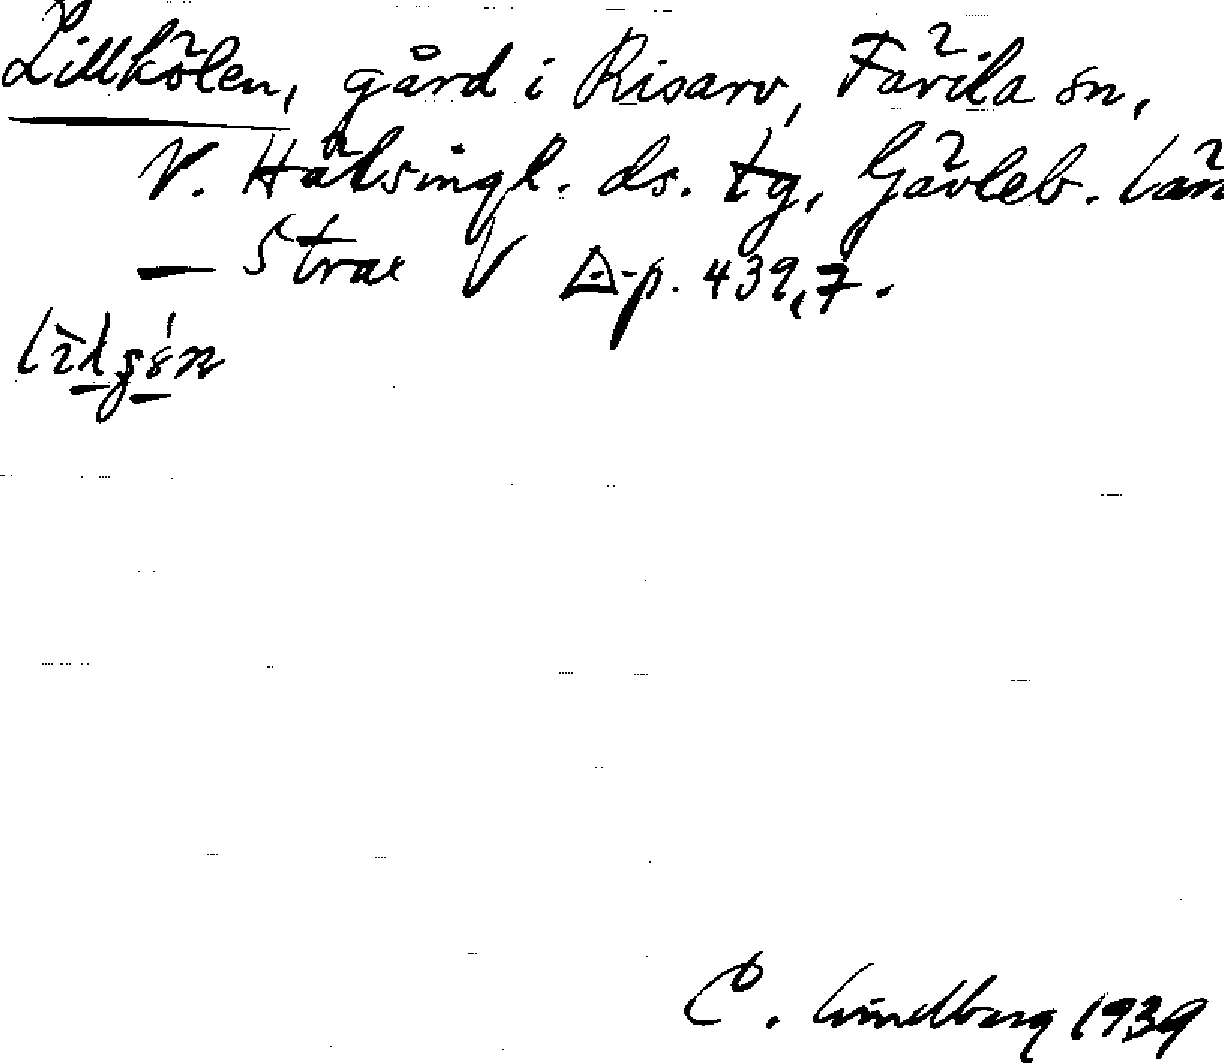 Lillkölen, gård i Risarv, Färila sn,
V. Hälsingl. ds. tg, Gävleb. län
— Strax V ∆-p. 439,7.
C. Lindberg 1939